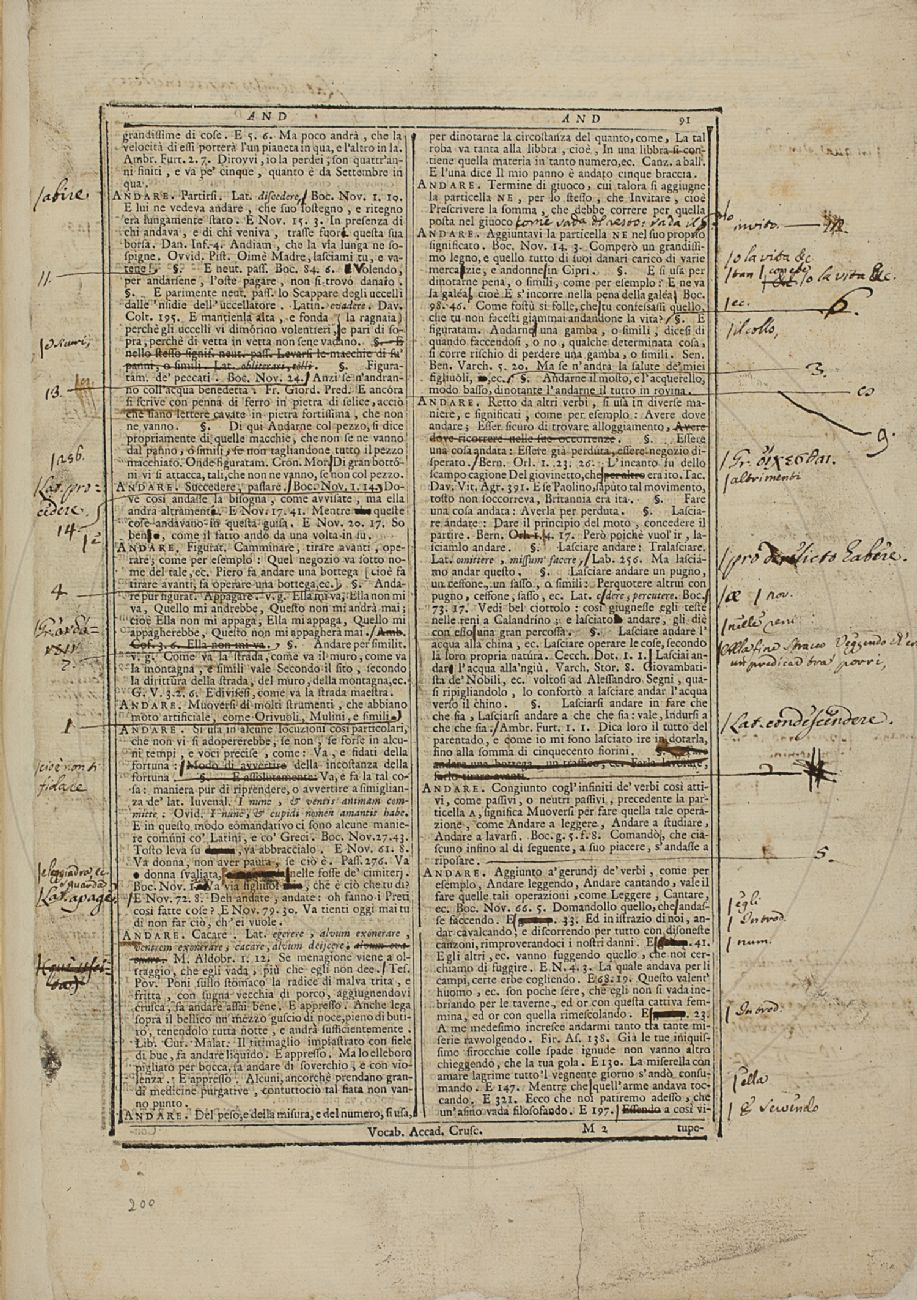 AND
AND
91
grandissime di cose. E 5. 6. Ma poco andrà, che la
velocità di essi porterà l'un pianeta in qua, e l'altro in là.
Ambr. Furt. 2. 7. Dirovvi, io la perdei; son quattr'an-
ni finiti, e va pe' cinque, quanto è da Settembre in
qua.
ANDARE. Partirsi. Lat. discedere, Boc. Nov. 1. 19.
E lui ne vedeva andare, che suo sostegno, e ritegno
era lungamente stato. E Nov. 15. 3. In presenza di
chi andava, e di chi veniva, trasse fuori questa sua
borsa. Dan. Inf. 4. Andiam, che la via lunga ne so-
spigne. Ovvid. Pist. Oimè Madre, lasciami tu, e va-
tene. §. E neut. pass. Boc. 84. 6. Volendo,
per andarsene, l'oste pagare, non si trovò danaio.
§. E parimente neut. pass. lo Scappare degli uccelli
dalle 'nsidie dell'uccellatore. Latin. evadere. Dav.
Colt. 195. E mantienla alta, e fonda (la ragnaia)
perchè gli uccelli vi dimorino volentieri, e pari di so-
pra, perchè di vetta in vetta non sene vadano. §. E
nello stesso signif. neut. pass. Levarsi le macchie di su'
panni, o simili. Lat. obliterari, tolli. §. Figura-
tam. de' peccati. Boc. Nov. 24. Anzi se n'andran-
no coll'acqua benedetta. Fr. Giord. Pred. E ancora
si scrive con penna di ferro in pietra di selice, acciò
che siano lettere cavate in pietra fortissima, che non
ne vanno. §. Di qui Andarne col pezzo, si dice
propriamente di quelle macchie, che non se ne vanno
dal panno, o simili, se non tagliandone tutto il pezzo
macchiato. Onde figuratam. Cron. Mor. Di gran botto-
ni vi si attacca, tali, che non ne vanno, se non col pezzo.
ANDARE. Succedere, passare. Boc. Nov. 1. 14. Do-
ve così andasse la bisogna, come avvisate, ma ella
andrà altramenti. E Nov. 17. 41. Mentre que queste
cose andavano in questa guisa. E Nov. 20. 17. So
bene, come il fatto andò da una volta in su.
ANDARE, Figurat. Camminare, tirare avanti, ope-
rare; come per esempio: Quel negozio va sotto no-
me del tale, ec. Piero fa andare una bottega (cioè fa
tirare avanti, fa operare una bottega, ec.) §. Anda-
re pur figurat. Appagare. v. g. Ella mi va, Ella non mi
va, Quello mi andrebbe, Questo non mi andrà mai;
cioè Ella non mi appaga, Ella mi appaga, Quello mi
appagherebbe, Questo non mi appagherà mai. Amb.
Cof. 3. 6. Ella non mi va. §. Andare per similit.
v. g. Come va la strada, come va il muro, come va
la montagna, e simili vale Secondo il sito, secondo
la dirittura della strada, del muro, della montagna, ec.
G. V. 3. 2. 6. E divisesi, come va la strada maestra.
ANDARE. Muoversi di molti strumenti, che abbiano
moto artificiale, come Orivuoli, Mulini, e simili.
ANDARE. Si usa in alcune locuzioni così particolari,
che non vi si adopererebbe, se non, se forse in alcu-
ni tempi, e voci precise, come: Va, e fidati della
fortuna: Modo di avvertire della incostanza della
fortuna. §. E assolutamente: Va, e fa la tal co-
sa: maniera pur di riprendere, o avvertire a simiglian-
za de' lat. Iuvenal. I nunc, & ventis animam com-
mitte: Ovid. I nunc, & cupidi nomen amantis habe.
E in questo modo comandativo ci sono alcune manie-
re comuni co' Latini, e co' Greci. Boc. Nov. 27. 43.
Tosto leva su, va abbraccialo. E Nov. 61. 8.
Va donna, non aver paura, se ciò è. Pass. 276. Va
donna svaliata, nelle fosse de' cimiterj.
Boc. Nov. 1. Va via figliuol, che è ciò che tu di?
E Nov. 72. 8. Deh andate, andate: oh fanno i Preti
così fatte cose? E Nov. 79. 30. Va tienti oggi mai tu
di non far ciò, ch'ei vuole.
ANDARE. Cacare. Lat. egerere, alvum exonerare,
ventrem exonerare, cacare, alvum deijcere, alvum eva-
M. Aldobr. 1. 12. Se menagione viene a ol-
traggio, che egli vada, più che egli non dee. Tes.
Pov. Poni sullo stomaco la radice di malva trita, e
fritta, con sugna vecchia di porco, aggiugnendovi
crusca, fa andare assai bene. E appresso. Anche lega
sopra il bellico un mezzo guscio di noce, pieno di buti-
ro, tenendolo tutta notte, e andrà sufficientemente.
Lib. Cur. Malat. Il ritimaglio impiastrato con fiele
di bue, fa andare liquido. E appresso. Ma lo elleboro
pigliato per bocca, fa andare di soverchio, e con vio-
lenza. E appresso. Alcuni, ancorchè prendano gran-
di medicine purgative, contuttociò tal fiata non van-
no punto.
ANDARE. Del peso, e della misura, e del numero, si usa,
per dinotarne la circostanza del quanto, come, La tal
roba va tanta alla libbra, cioè, In una libbra si con-
tiene quella materia in tanto numero, ec. Canz. a ball.
E l'una dice Il mio panno è andato cinque braccia.
ANDARE. Termine di giuoco, cui talora si aggiugne
la particella NE, per lo stesso, che Invitare, cioè
Prescrivere la somma, che debbe correre per quella
posta nel giuoco
ANDARE. Aggiuntavi la particella NE nel suo proprio
significato. Boc. Nov. 14. 3. Comperò un grandissi-
mo legno, e quello tutto di suoi danari caricò di varie
mercatazie, e andonne in Cipri. §. E si usa per
dinotarne pena, o simili, come per esempio: E ne va
la galéa, cioè E s'incorre nella pena della galéa. Boc.
98. 46. Come fostù sì folle, che tu confessassi quello,
che tu non facesti giammai andandone la vita? §. E
figuratam. Andarne una gamba, o simili, dicesi di
quando faccendosi, o no, qualche determinata cosa,
si corre rischio di perdere una gamba, o simili. Sen.
Ben. Varch. 5. 20. Ma se n'andrà la salute de' miei
figliuoli, ec. §. Andarne il mosto, e l'acquerello,
modo basso, dinotante l'andarne il tutto in rovina.
ANDARE. Retto da altri verbi, si usa in diverse ma-
niere, e significati, come per esempio: Avere dove
andare; Esser sicuro di trovare alloggiamento, Avere
dove ricorrere nelle sue occorrenze. §. Essere
una cosa andata: Essere già perduta, essere negozio di-
sperato. Bern. Orl. 1. 23. 26. L'incanto fu dello
scampo cagione Del giovinetto, che peraltro era ito. Tac.
Dav. Vit. Agr. 391. E se Paolino, saputo tal movimento,
tosto non soccorreva, Britannia era ita. §. Fare
una cosa andata: Averla per perduta. §. Lascia-
re andare: Dare il principio del moto, concedere il
partire. Bern. Orl. 1. 4. 17. Però poichè vuol' ir, la-
sciamlo andare. §. Lasciare andare: Tralasciare.
Lat. omittere, missum facere, Lab. 256. Ma lascia-
mo andar questo. §. Lasciare andare un pugno,
un ceffone, un sasso, o simili: Perquotere altrui con
pugno, ceffone, sasso, ec. Lat. cædere, percutere. Boc.
73. 17. Vedi bel ciottolo: così giugnesse egli teste
nelle reni a Calandrino; e lasciato andare, gli diè
con esso una gran percossa. §. Lasciare andare l'
acqua alla china, ec. Lasciare operare le cose, secondo
la loro propria natura. Cecch. Dot. 1. 1. Lascisi an-
dare l'acqua all'ingiù. Varch. Stor. 8. Giovambati-
sta de' Nobili, ec. voltosi ad Alessandro Segni, qua-
si ripigliandolo, lo confortò a lasciare andar l'acqua
verso il chino. §. Lasciarsi andare in fare che
che sia, Lasciarsi andare a che che sia: vale, Indursi a
che che sia. Ambr. Furt. 1. 1. Dica loro il tutto del
parentado, e come io mi sono lasciato ire in dotarla,
fino alla somma di cinquecento fiorini.
andare una bottega, un traffico, ec. Farlo lavorare,
farlo tirare avanti.
ANDARE. Congiunto cogl'infiniti de' verbi così atti-
vi, come passivi, o neutri passivi, precedente la par-
ticella A, significa Muoversi per fare quella tale opera-
zione, come Andare a leggere, Andare a studiare,
Andare a lavarsi. Boc. g. 5. f. 8. Comandò, che cia-
scuno infino al dì seguente, a suo piacere, s'andasse a
riposare.
ANDARE. Aggiunto a' gerundj de' verbi, come per
esempio, Andare leggendo, Andare cantando, vale il
fare quelle tali operazioni, come Leggere, Cantare,
ec. Boc. Nov. 66. 5. Domandollo quello, che andas-
se faccendo. E 33. Ed in istrazio di noi, an-
dar cavalcando, e discorrendo per tutto con disoneste
canzoni, rimproverandoci i nostri danni. E 41.
E gli altri, ec. vanno fuggendo quello, che noi cer-
chiamo di fuggire. E N. 4. 3. La quale andava per li
campi, certe erbe cogliendo. E 68. 19. Questo valent'
huomo, ec. son poche sere, che egli non si vada ine-
briando per le taverne, ed or con questa cattiva fem-
mina, ed or con quella rimescolando. E 23.
A me medesimo incresce andarmi tanto tra tante mi-
serie ravvolgendo. Fir. As. 138. Già le tue iniquis-
sime sirocchie colle spade ignude non vanno altro
chieggendo, che la tua gola. E 130. La miserella con
amare lagrime tutto'l vegnente giorno s'andò consu-
mando. E 147. Mentre che quell'arme andava toc-
cando. E 321. Ecco che noi patiremo adesso, che
un'asino vada filosofando. E 197. Essendo a così vi-
Vocab. Accad. Crusc.
M 2
tupe-
abire.
11.
13.
256.
Lat. pro-
cedere.
14
4
1
Lat. apage
invito.
o la vita &c.
6.
ec.
il collo,
3.
co
9.
Gr. οἴχεσθαι.
altrimenti
pro derelicto habere.
æ
nov.
nelle reni
Lat. condescendere.
2
5.
egli
Introd.
num.
Introd.
ella
E scrivendo
200